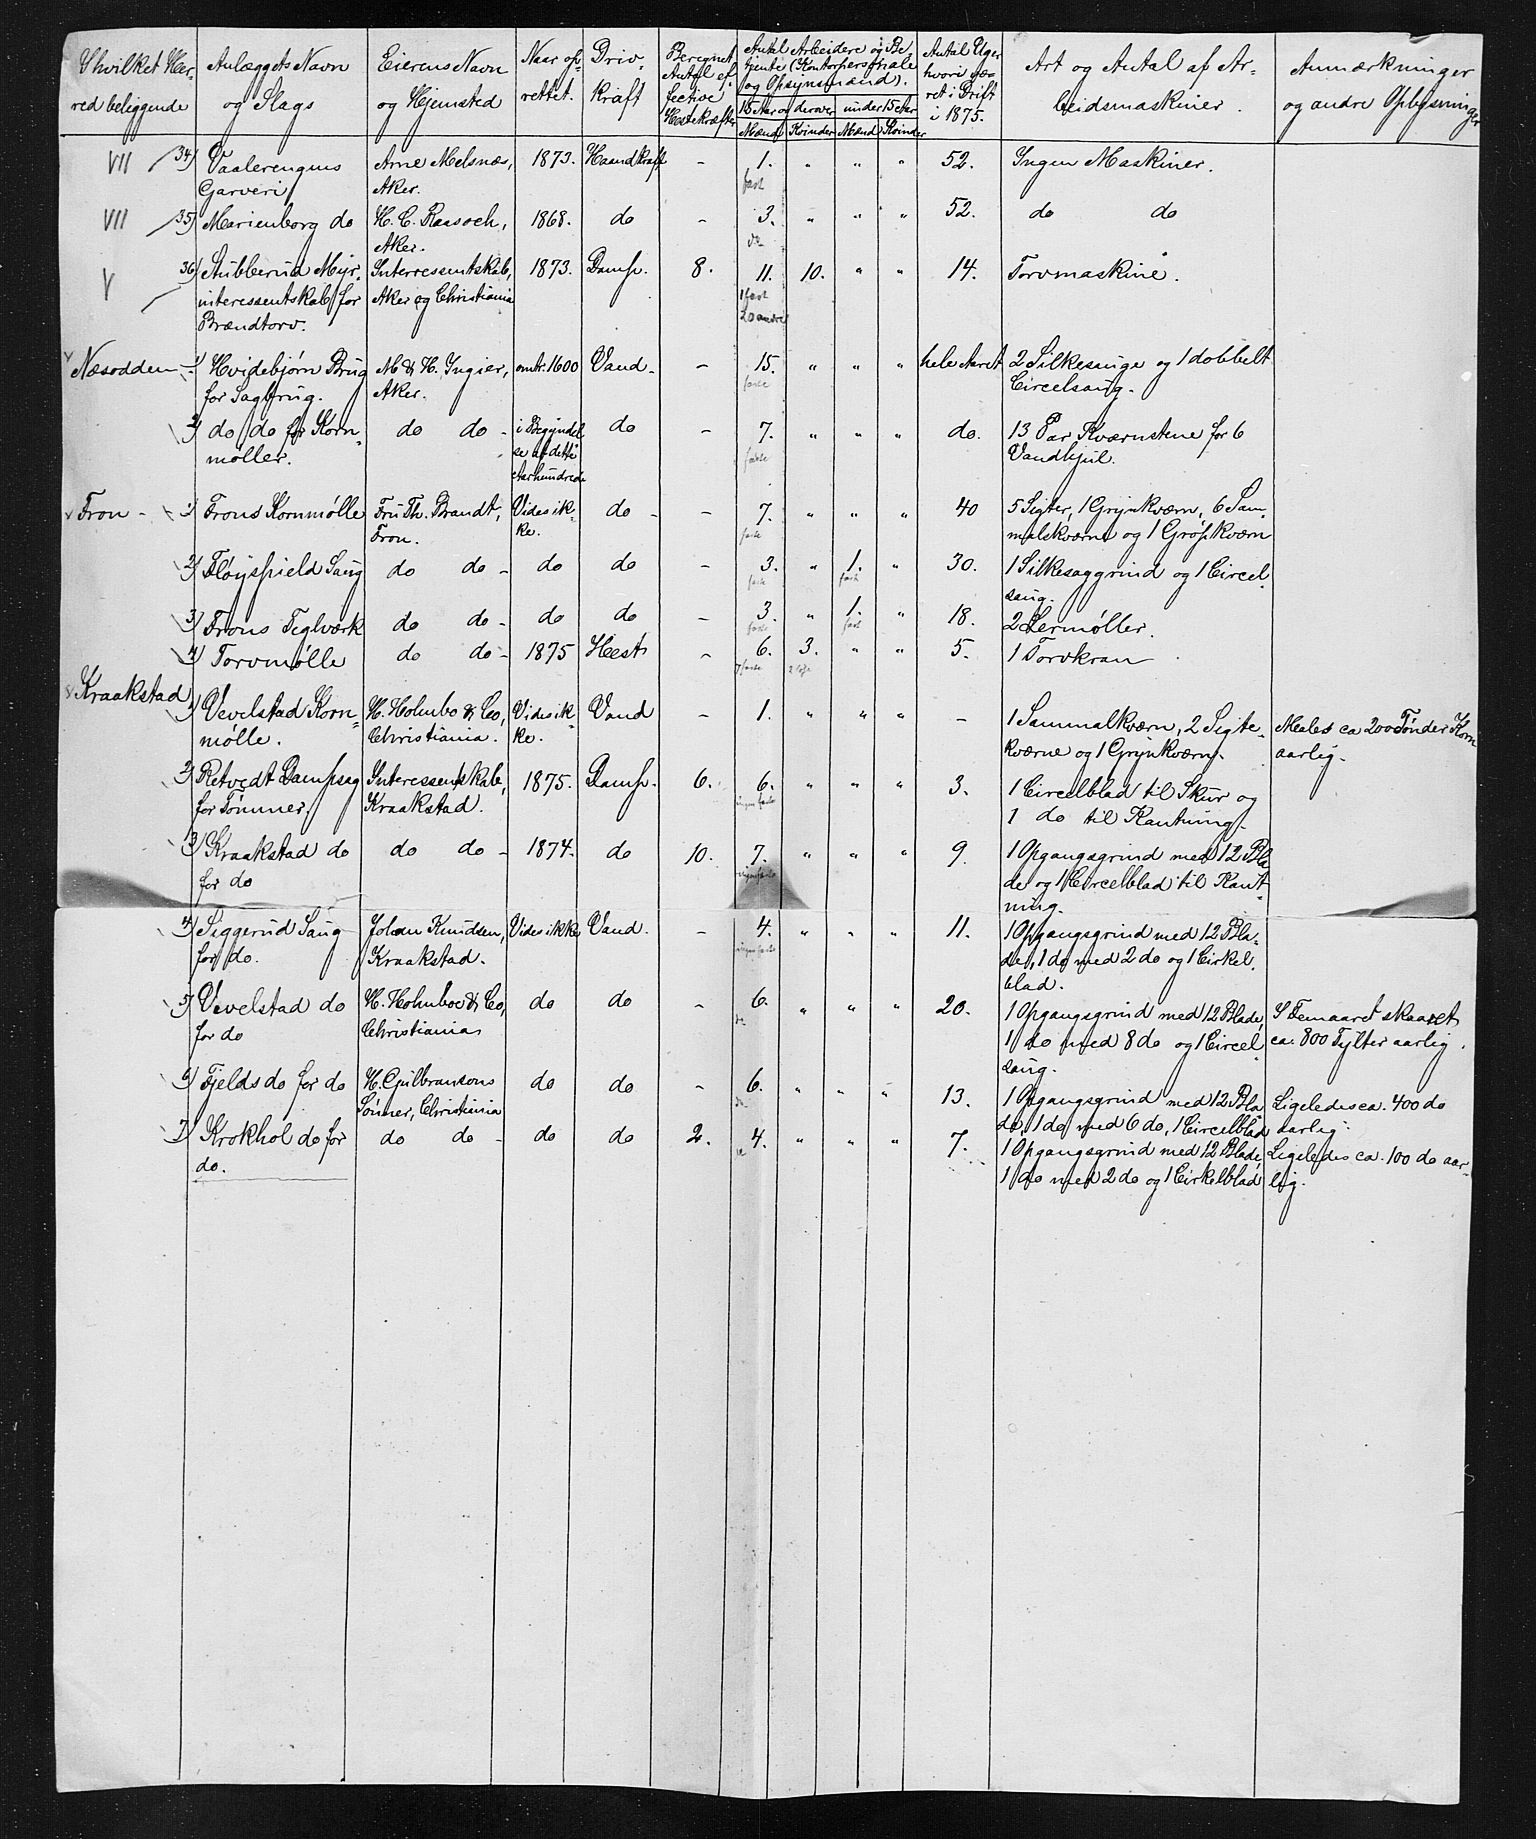 I hvilket Her- | Anlæggets Navn | Eierens Navn | Naar op- | Driv- | Beregnet | Antal Arbeidere og Be- | Antal Uger | Art og Antal af Ar- | Anmærkninger
red beliggende | og Slags | og Hjemsted | rettet. | kraft | Antal ef- | tjente (Kontorpersonale | hvori væ- | beidsmaskiner. | og andre Oplysninger
fective | og Opsynsmænd). | ret i Drift
Hestekræfter | 15 Aar og derover | under 15 Aar | i 1875.
Mænd | Kvinder | Mænd | Kvinder
VII 34) Vaalerengens | Arne Melsnæs, | 1873. | Haandkraft | - | 1. | " | " | " | 52. | Ingen Maskiner.
Garveri | Aker. | fast
VII 35) Marienborg do | H. C. Raasoch, | 1868. | do | - | 3. | " | " | " | 52. | do do
Aker. | do
V 36) Stubberud Myr- | Interressentskab, | 1873. | Damp. | 8. | 11. | 10. | " | " | 14. | Torvmaskine.
interessentskab for | Aker og Christiania | 1 fast
Brændtorv. | 20 andre
Næsodden - 1) Hvidebjørn Brug | M & H. Ingier, | omtr. 1600 | Vand - | - | 15. | " | " | " | hele Aaret | 2 Silkesauge og 1 dobbelt
for Sagbrug. | Aker. | faste | Circelsaug.
2) do do for Korn- | do do - | i Begyndel- | do | - | 7. | " | " | " | do. | 13 Par Kværnstene for 6
møller. | se af dette | faste | Vandhjul.
Aarhundrede
Fron - 1) Frons Kornmølle | Fru Th. Brandt, | Vides ik- | do - | - | 7. | " | " | " | 40 | 5 Sigter, 1 Grynkværn, 6 Sam-
Fron. | ke. | faste | malskværne og 1 Gröpkværn
2) Fløyspield Saug | do do - | do | do | - | 3. | " | 1. | " | 30. | 1 Silkesaggrind og 1 Circel-
faste | fast | saug.
3) Frons Teglværk | do do - | do | do | - | 3. | " | 1. | " | 18. | 2 Lermøller.
faste | fast
4) Torvmølle | do do - | 1875 | Hest | - | 6. | 3. | " | " | 5. | 1 Torvkran
faste
Kraakstad 1) Vevelstad Korn- | H. Holmbo & Co, | Vides ik- | Vand | - | 1. | " | " | " | - | 1 Sammalkværn, 2 Sigte- | Males ca 200 Tønder Korn
mølle. | Christiania. | ke. | kværne og 1 Grynkværn. | aarlig.
2) Retvedt Dampsag | Interessentskab, | 1875. | Damp. | 6. | 6. | " | " | " | 3. | 1 Circelblad til Skur og
for Tømmer. | Kraakstad. | ingen faste | 1 do til Kantning.
3) Kraakstad do | do do - | 1874. | do | 10. | 7. | " | " | " | 9. | 1 Opgangsgrind med 12 Bla-
for do | ingen faste | de og 1 Circelblad til Kant-
ning.
4) Siggerud Saug | Johan Knudsen, | Vides ikke | Vand. | - | 4. | " | " | " | 11. | 1 Opgangsgrind med 12 Bla-
for do. | Kraakstad. | ingen faste | de, 1 do med 2 do og 1 Cirkel-
blad.
5) Vevelstad do | H. Holmboe & Co, | do | do | - | 6. | " | " | " | 20. | 1 Opgangsgrind med 12 Blade, | I Femaaret skaaret
for do | Christiania | do | 1 do med 8 do og 1 Circel- | ca. 800 Tylter aarlig.
saug.
6) Fjelds do for do | H. Gulbransons | do | do | - | 6. | " | " | " | 13. | 1 Opgangsgrind med 12 Bla- | Ligeledes ca. 400 do
Sønner, Christiania | do | de, 1 do med 6 do, 1 Circelblad | aarlig.
7) Krokhol do for | do do - | do | do | 2. | 4. | " | " | " | 7. | 1 Opgangsgrind med 12 Blade, | Ligeledes ca. 100 do aar-
do. | do | 1 do med 2 do og 1 Cirkelblad | lig.